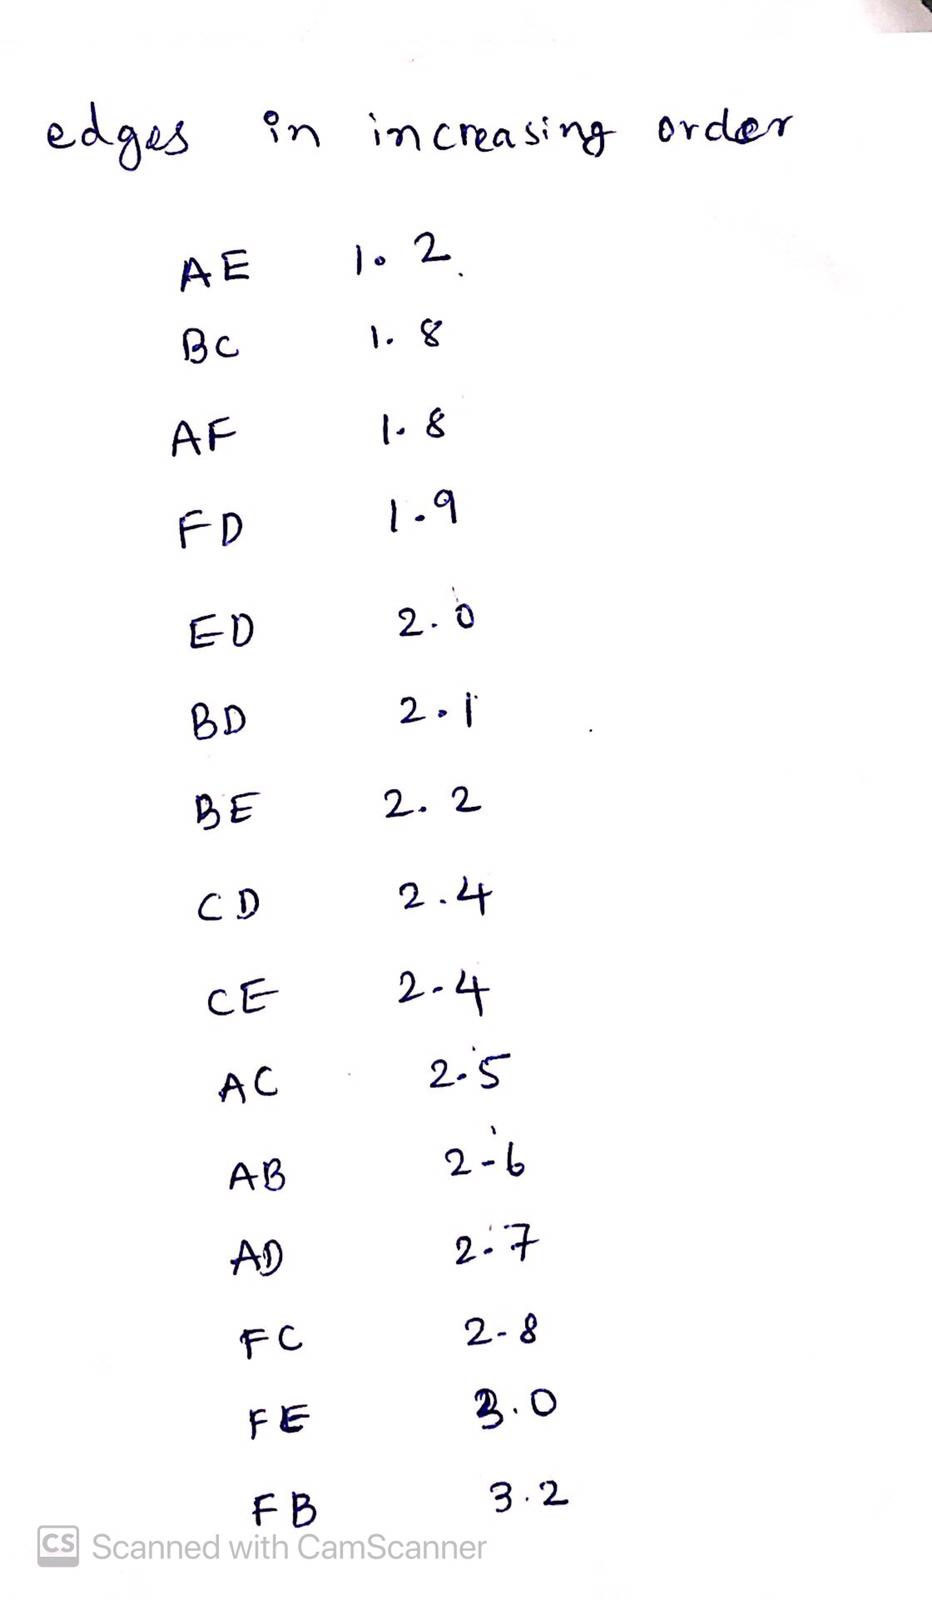 edges in increasing order
AE 1.2
BC 1.8
AF 1.8
FD 1.9
ED 2.0
BD 2.1
BE 2.2
CD 2.4
CE 2.4
AC 2.5
AB 2.6
AD 2.7
FC 2.8
FE 3.0
FB 3.2
CS Scanned with CamScanner